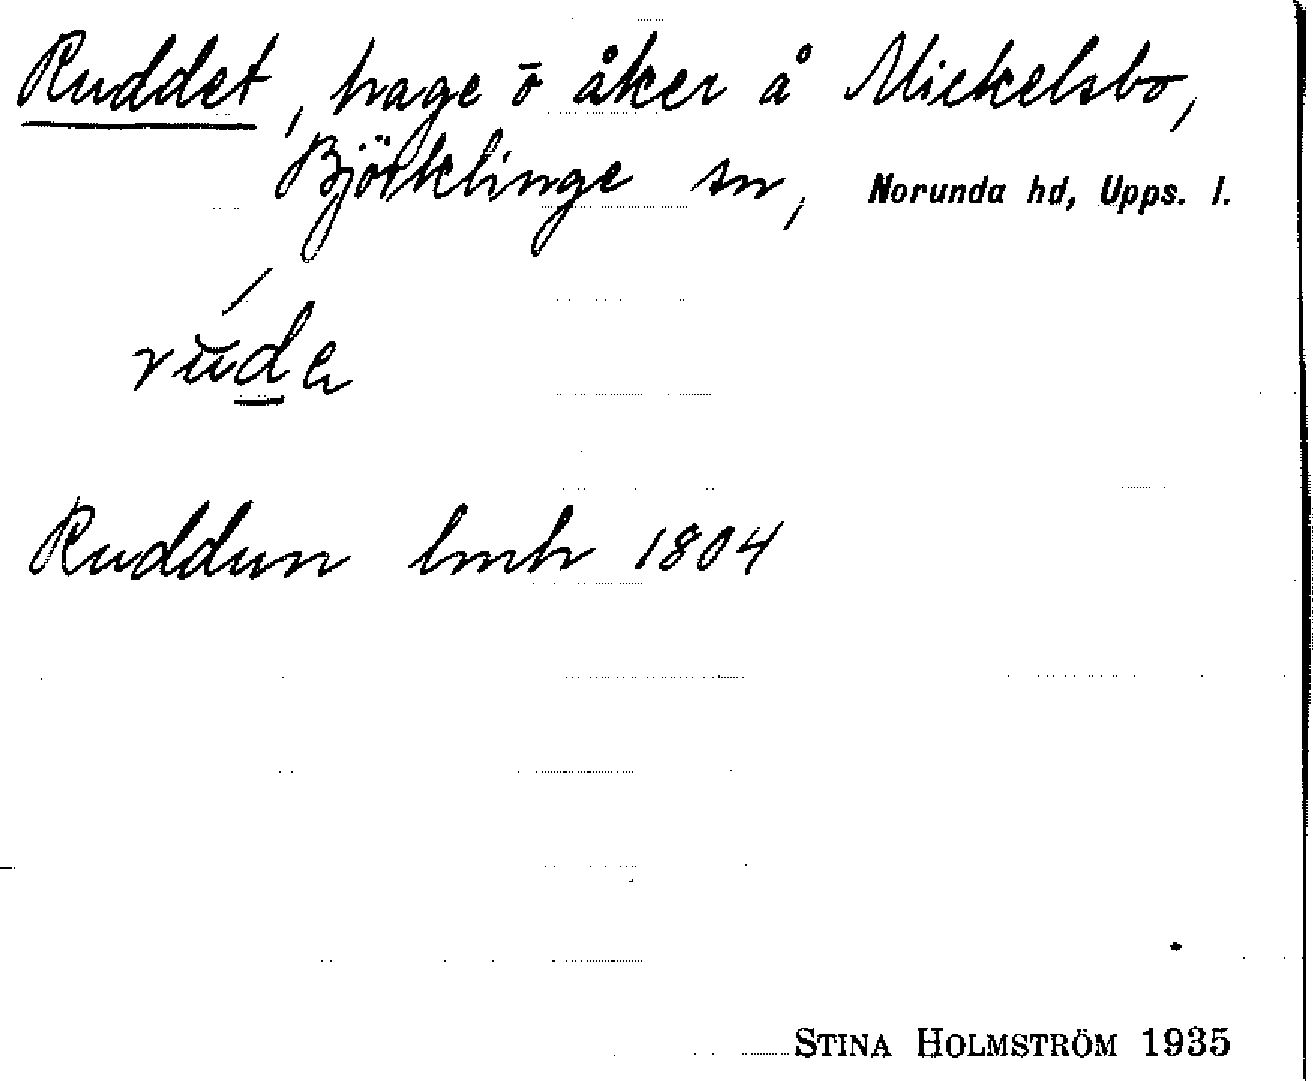 Ruddet, hage ō åker å Mickelsbo,
Björklinge sn, Norunda hd, Upps. l.
Ruddun lmh 1804
STINA HOLMSTRÖM 1935